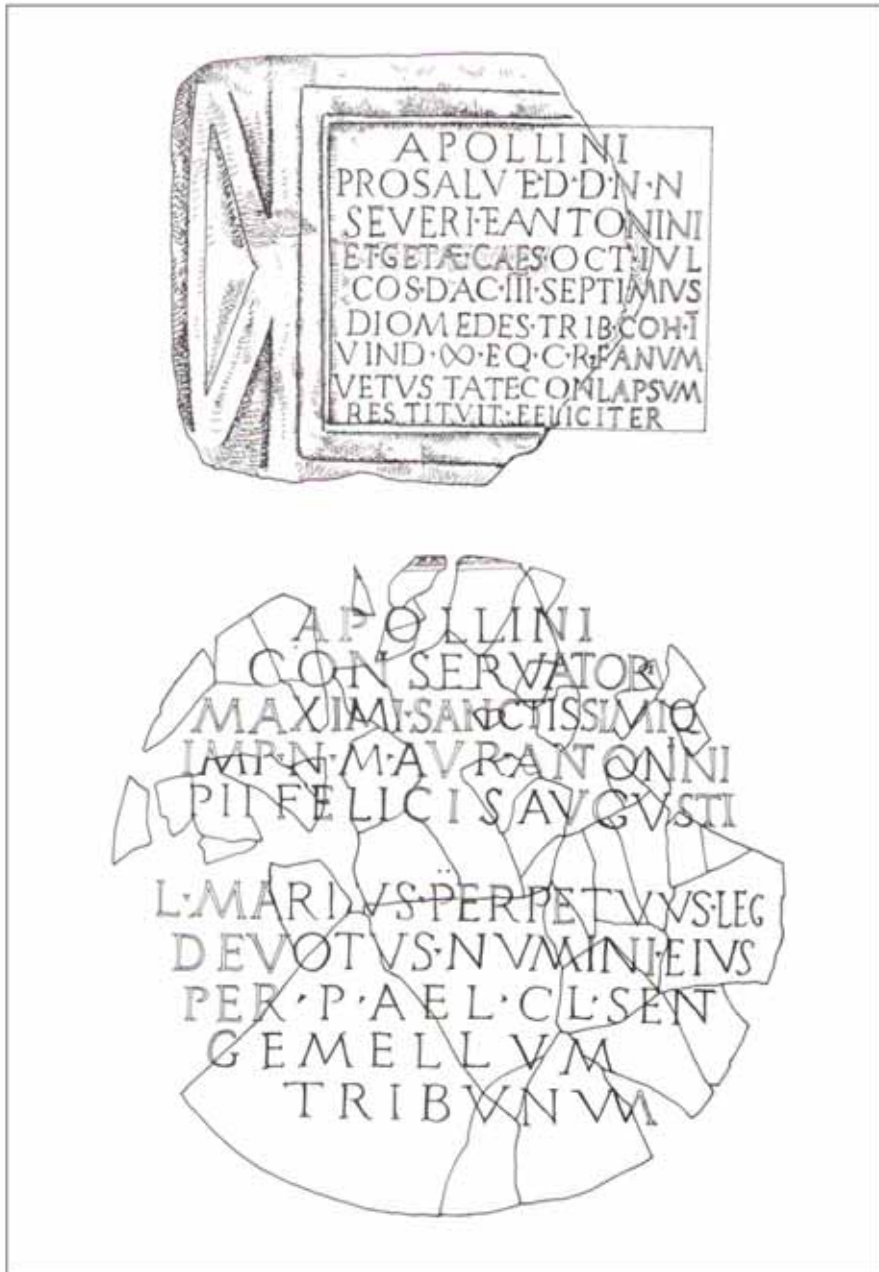 APOLLINI
PROSALVTE·D·D·N·N
SEVERI·E ANTONINI
ET·GETÆ·CAES·OCT·IVL
COS·DAC·III·SEPTIMIVS
DIOMEDES·TRIB·COH·I
VIND·∞·EQ·C·R·FANVM
VETVSTATECONLAPSVM
RESTITVIT·FELICITER
APOLLINI
CONSERVATORI
MAXIMI·SANCTISSIMIQ
IMP·N·M·AVR·ANTONNI
PII FELICIS AVGVSTI
L·MARIVS·PERPETVVS·LEG
DEVOTVS·NVMINI·EIVS
PER·P·AEL·CL·SENT
GEMELLVM
TRIBVNVM